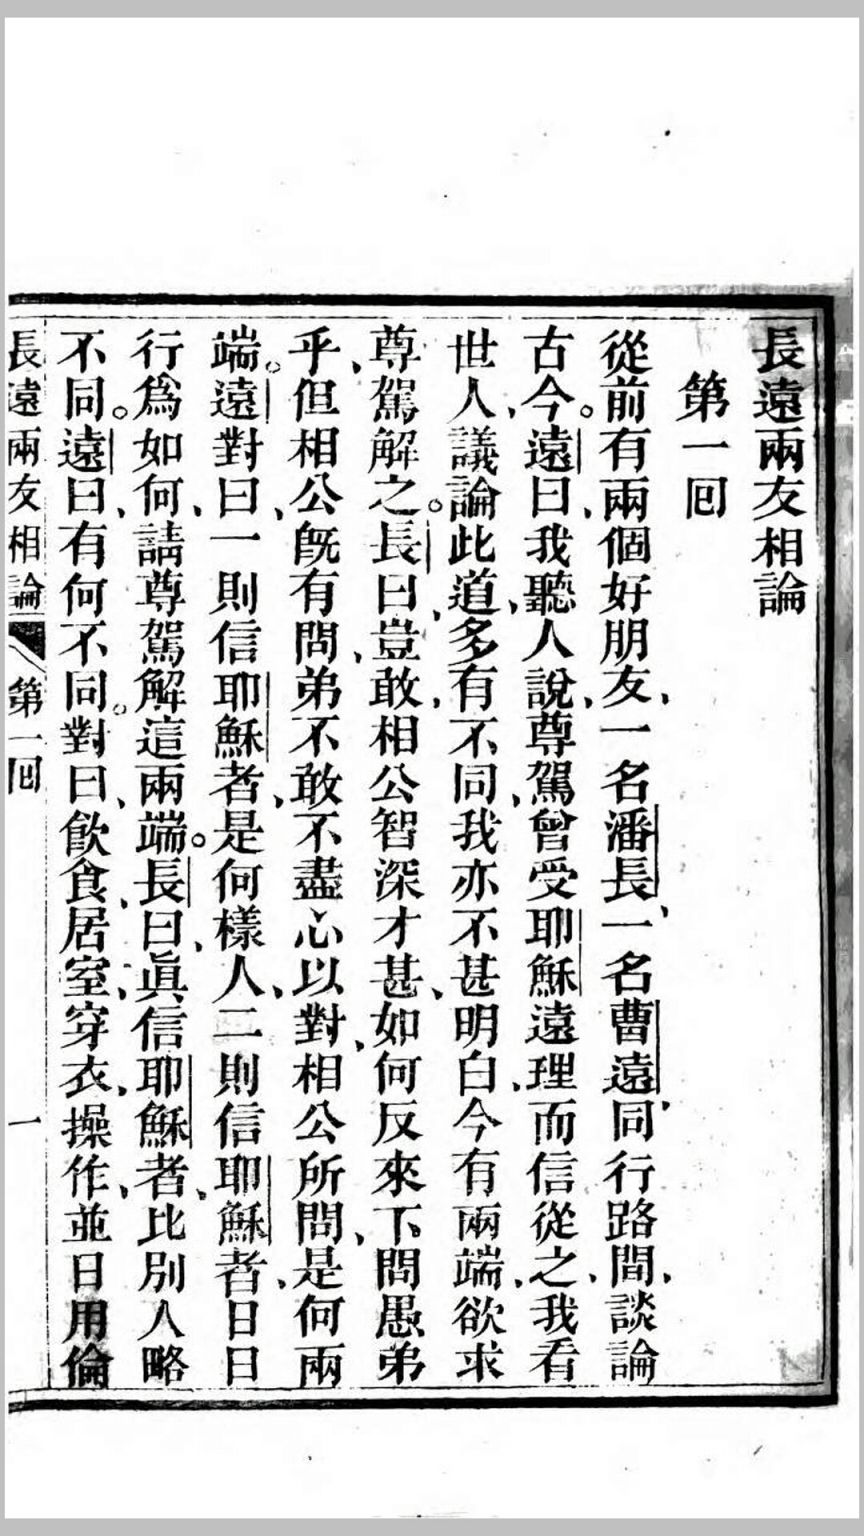 長遠兩友相論
第一回
從前有兩個好朋友、一名潘長、一名曹遠、同行路間、談論
古今。遠曰、我聽人說、尊駕曾受耶穌遠理而信從之、我看
世人、議論此道、多有不同、我亦不甚明白、今有兩端、欲求
尊駕解之。長曰、豈敢、相公智深才甚、如何反來下問愚弟
乎、但相公旣有問、弟不敢不盡心以對、相公所問、是何兩
端。遠對曰、一則信耶穌者、是何樣人、二則信耶穌者、日日
行爲如何、請尊駕解這兩端。長曰、眞信耶穌者、比別人略
不同。遠曰、有何不同。對曰、飮食、居室、穿衣、操作、並日用倫
長遠兩友相論 第一回 一